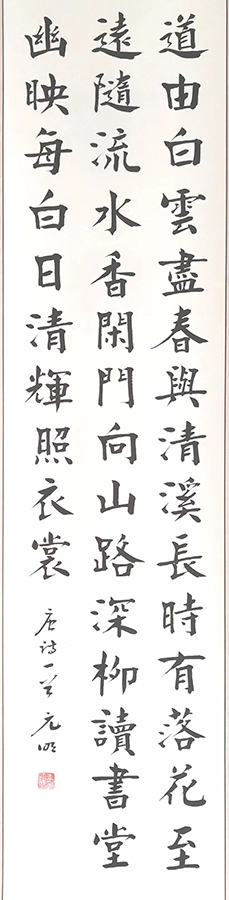 道由白雲盡春與清溪長時有落花至
遠隨流水香閑門向山路深柳讀書堂
幽映每白日清輝照衣裳
唐詩一首 元明